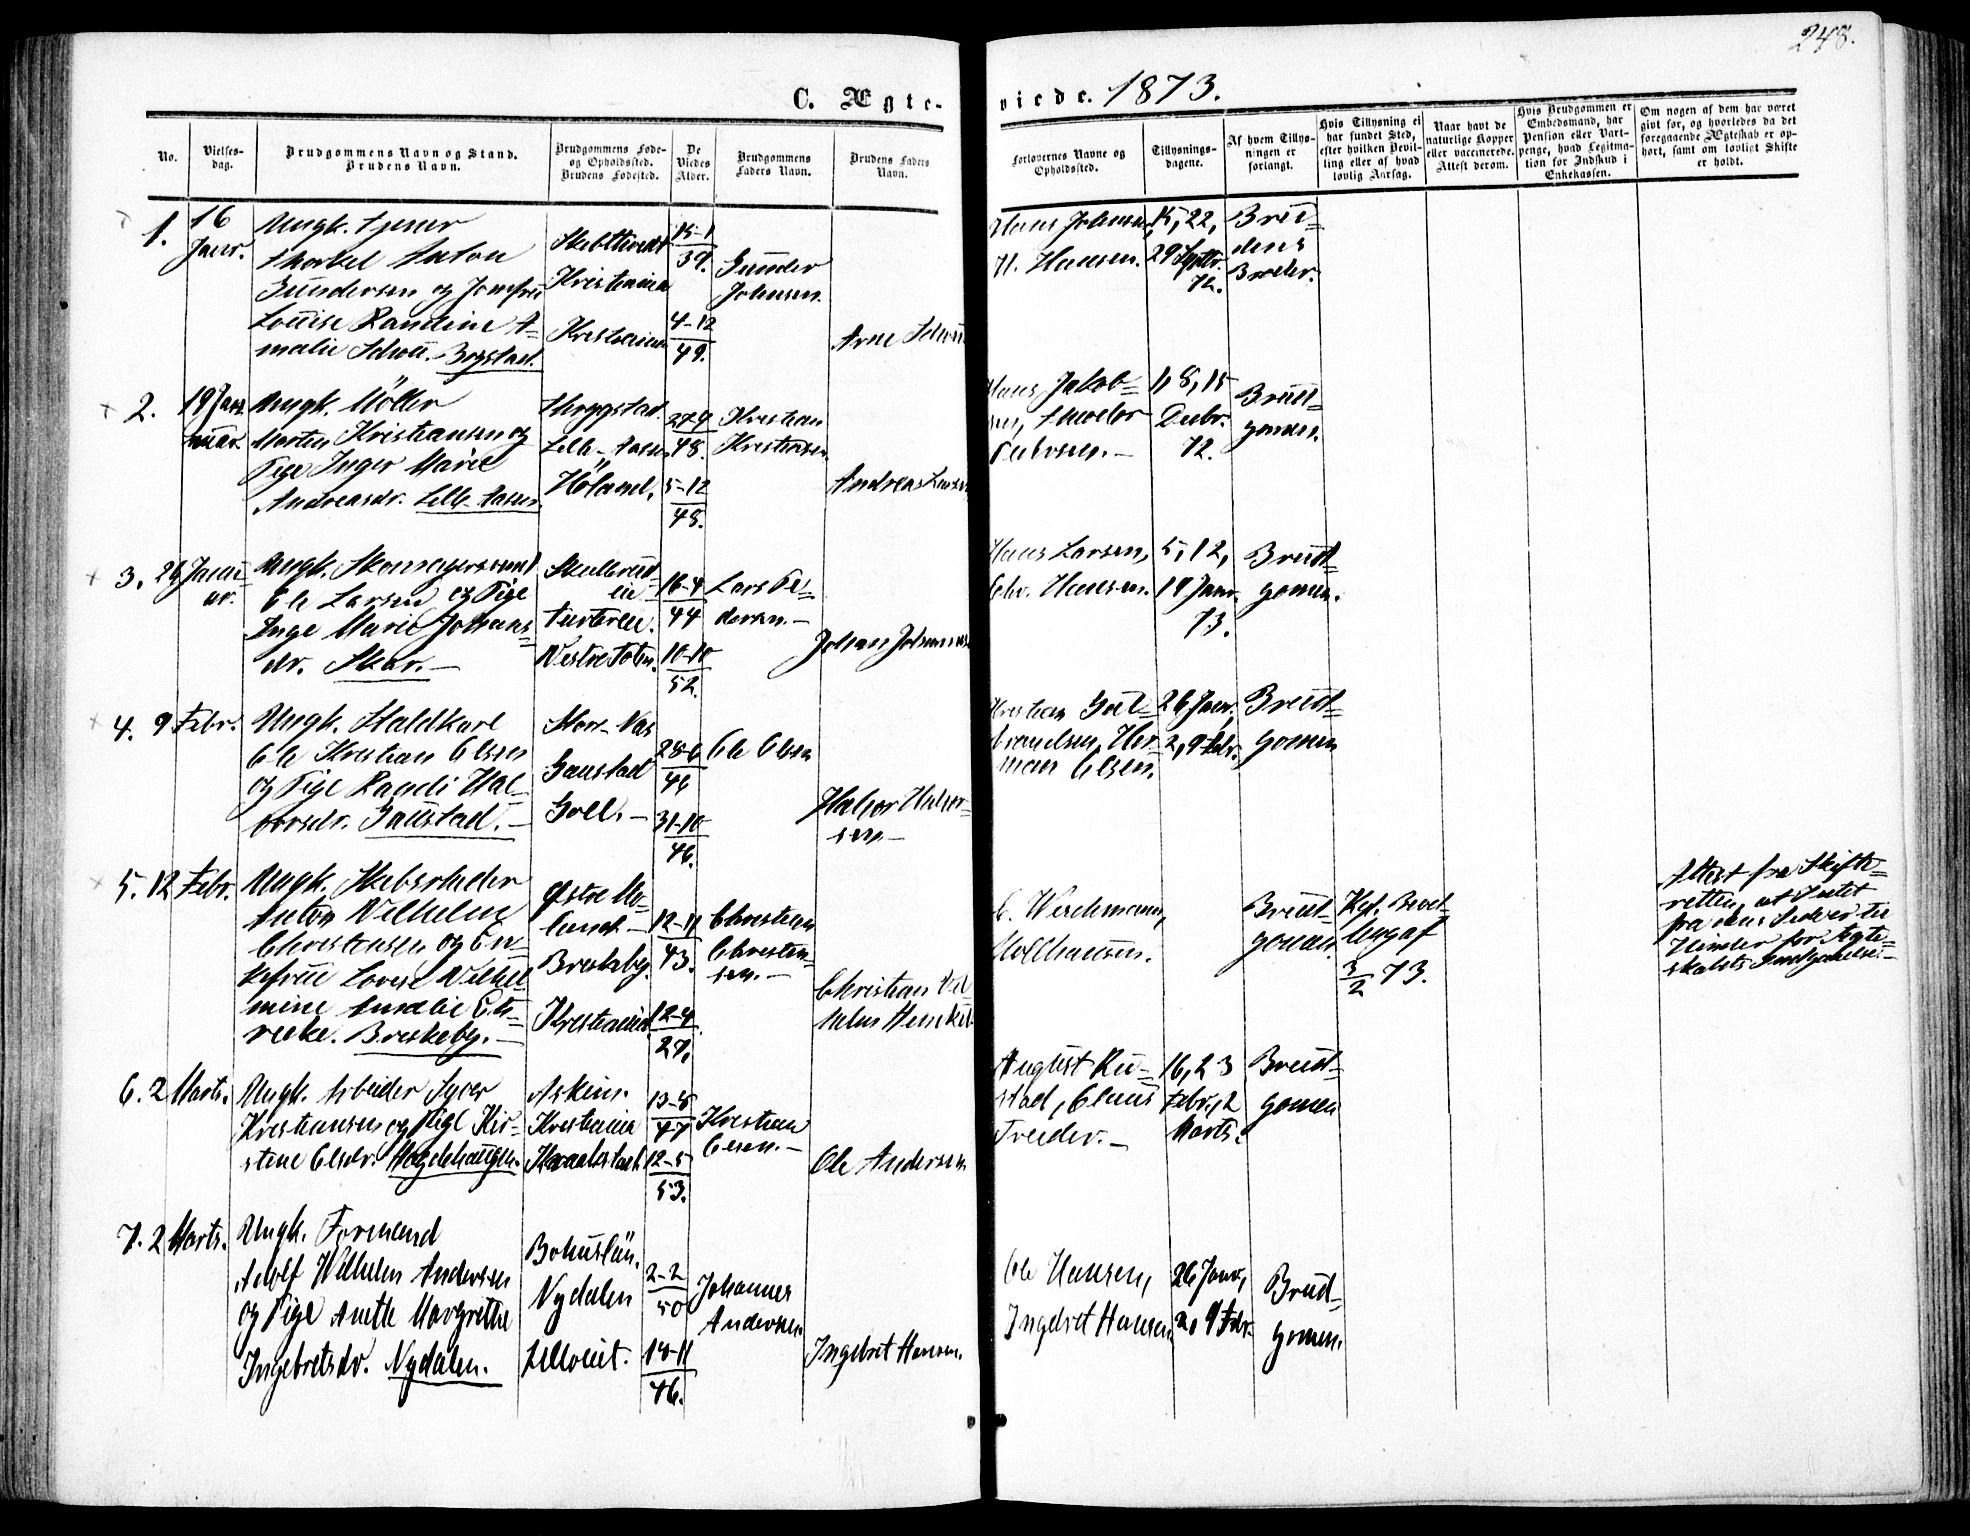 248.
C. Ægte-viede. 1873.
No.
Vielses-
dag.
Brudgommens Navn og Stand.
Brudens Navn.
Brudgommens Føde-
og Opholdssted.
Brudens Fødested.
De
Viedes
Alder.
Brudgommens
Faders Navn.
Brudens Faders
Navn.
Forlovernes Navne og
Opholdssted.
Tillysnings-
dagene.
Af hvem Tillys-
ningen er
forlangt.
Hvis Tillysning ei
har fundet Sted,
efter hvilken Bevil-
ling eller af hvad
lovlig Aarsag.
Naar havt de
naturlige Kopper
eller vaccinerede.
Attest derom.
Hvis Brudgommen er
Embedsmand, har
Pension eller Vart-
penge, hvad Legitma-
tion for Indskud i
Enkekassen.
Om nogen af dem har været
gift før, og hvorledes da det
foregaaende Ægteskab er op-
hørt, samt om lovligt Skifte
er holdt.
1.
16
Janr.
Ungk. Tjener
Thorkel Anton
Gundersen og Jomfru
Louise Randine A-
malie Schou. Bogstad.
Kristiania
Kristiania
15-1
39.
4-12
49.
Gunder
Johnsen.
Arne Schou
Hans Johnsen,
H. Hansen.
15, 22,
29 Septbr.
72.
Bru-
dens
Broder.
2.
19 Jan-
uar.
Ungk. Møller
Morten Kristiansen og
Pige Inger Marie
Andreasdr. Lille-Aasen.
Lille-Aasen
Höland.
27-9
48.
5-12
48.
Kristian
Kristiansen.
Andreas Larsen
Hans Jakob-
sen, Theodor
Pedersen.-
1, 8, 15
Decbr.
72.
Brud-
gomen.
3.
26 Janu-
ar.
Ungk. Skomagersvend
Ole Larsen og Pige
Inge Marie Johans-
dr. Skar.-
Vestre Toten.
16-4
44
10-10
52.
Lars Pe-
dersen.-
Johan Johannes
Hans Larsen,
Chr. Hansen.
5, 12,
19 Janr.
73.
Brud-
gomen.
4.
9 Febr.
Ungk. Staldkarl
Ole Kristian Olsen
og Pige Randi Hal-
vorsdr. Gaustad.-
Stor-Næs
Gaustad
Goll.-
28-6
46
31-10
46.
Ole Olsen
Halvor Halvor-
sen.-
Kristian Gul-
brandsen, Her-
man Olsen.
26 Janr.,
2, 9 Febr.
Brud-
gomen
5.
12 Febr.
Ungk. Skibsreder
Anton Vilhelm
Christensen og En-
kefrue Lovise Vilhel-
mine Amalie Eh-
renke. Briskeby.-
Østre Mo-
land-
Briskeby.
Kristiania
12-11
43.
12-4
27.
Christian
Christen-
sen.-
Christian Vil
helm Henkel
C. Wiechmann,
Mollhausen.
Brud-
goman
Kgl. Bevil-
ling af
3/2 73.
Attest fra Skifte-
retten, at Intet
fra dens Side er til
Hinder for Ægte-
skabets Indgaaelse.-
6.
2 Marts.
Ungk. Arbeider Syver
Kristiansen og Pige Kir-
stine Olsdr. Hægdehaugen.
Askim.
Kristiania
Kraakstad.
13-8
47
12-5
53.
Kristian
Olsen.-
Ole Andersen
August Ru-
stad, Claus
Treider.-
16, 23
Febr., 2
Marts.
Brud-
gomen
7.
2 Marts.
Ungk. Formand
Adolf Wilhelm Andersen
og Pige Anette Margrethe
Ingebretsdr. Nydalen.
Bohuslän.
Nydalen
2-2
50
18-11
46.
Johannes
Andersen
Ingebret Hansen.
Ole Hansen,
Ingebret Hansen
26 Janr,
2, 9 Febr.
Brud-
gomen.